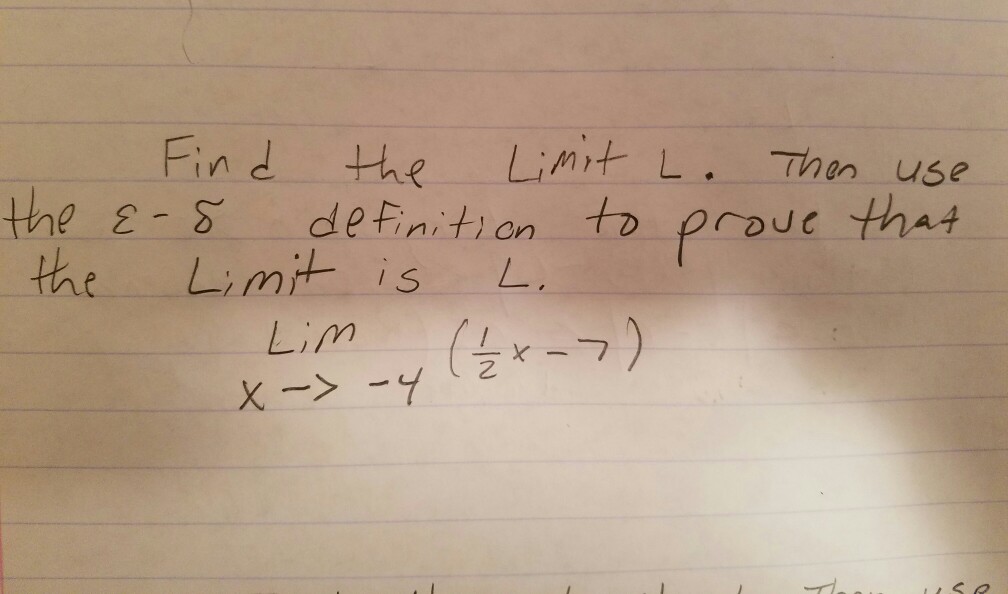 Find the Limit L. Then use
the ε-δ definition to prove that
the Limit is L.
Lim (1/2 x - 7)
x -> -4
Then use